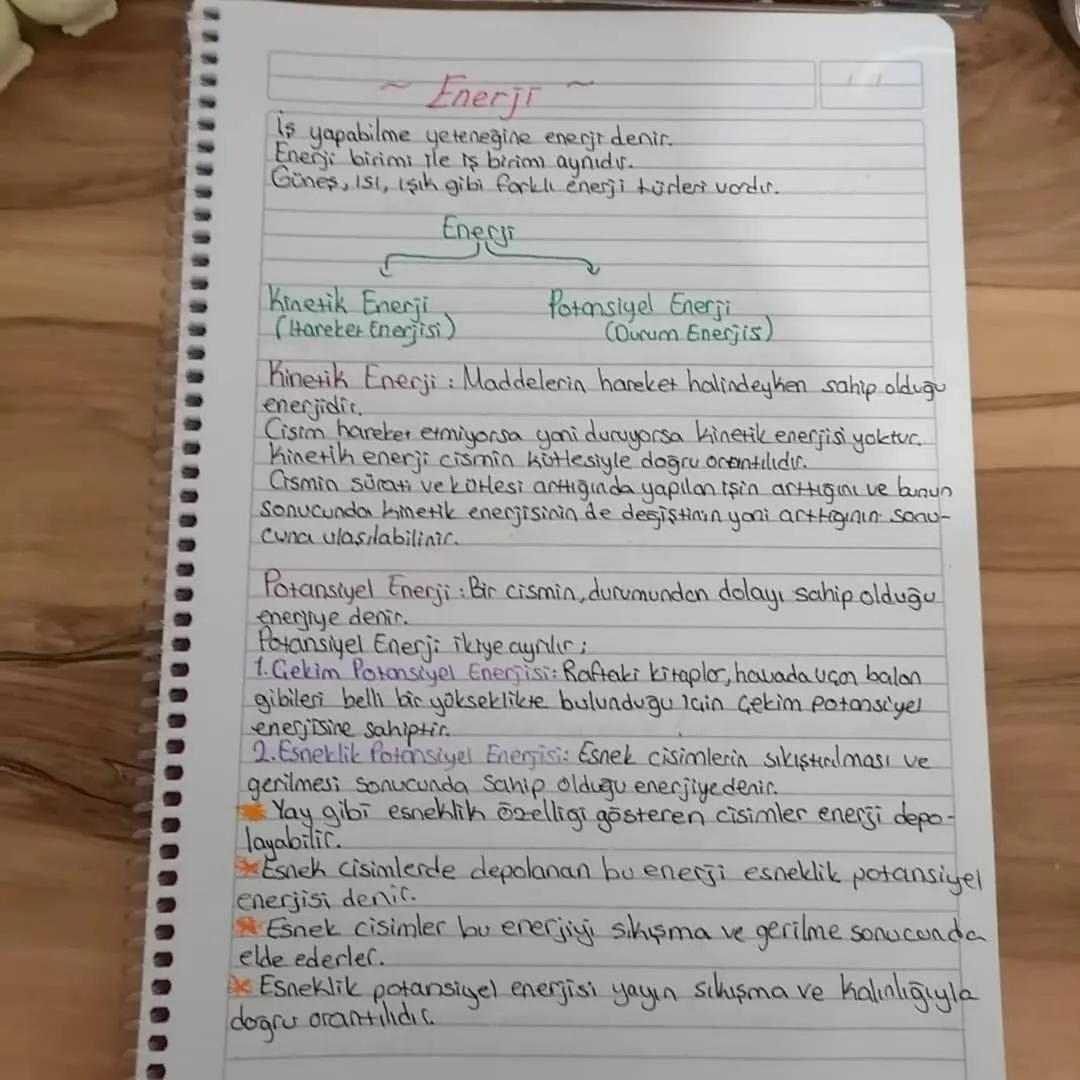 ~ Enerji ~
İş yapabilme yeteneğine enerji denir.
Enerji birimi ile iş birimi aynıdır.
Güneş, ısı, ışık gibi farklı enerji türleri vardır.
Enerji
Kinetik Enerji Potansiyel Enerji
(Hareket Enerjisi) (Durum Enerjis)
Kinetik Enerji : Maddelerin hareket halindeyken sahip olduğu
enerjidir.
Cisim hareket etmiyorsa yani duruyorsa kinetik enerjisi yoktur.
Kinetik enerji cismin kütlesiyle doğru orantılıdır.
Cismin sürati ve kütlesi arttığında yapılan işin arttığını ve bunun
sonucunda kinetik enerjisinin de değiştinin yani arttığının sonu-
cuna ulaşılabilinir.
Potansiyel Enerji : Bir cismin, durumundan dolayı sahip olduğu
enerjiye denir.
Potansiyel Enerji ikiye ayrılır ;
1. Çekim Potansiyel Enerjisi: Raftaki kitaplar, havada uçan balon
gibileri belli bir yükseklikte bulunduğu için çekim potansiyel
enerjisine sahiptir.
2. Esneklik Potansiyel Enerjisi: Esnek cisimlerin sıkıştırılması ve
gerilmesi sonucunda sahip olduğu enerjiye denir.
* Yay gibi esneklik özelliği gösteren cisimler enerji depo-
layabilir.
* Esnek cisimlerde depolanan bu enerji esneklik potansiyel
enerjisi denir.
* Esnek cisimler bu enerjiyi sıkışma ve gerilme sonucunda
elde ederler.
* Esneklik potansiyel enerjisi yayın sıkışma ve kalınlığıyla
doğru orantılıdır.